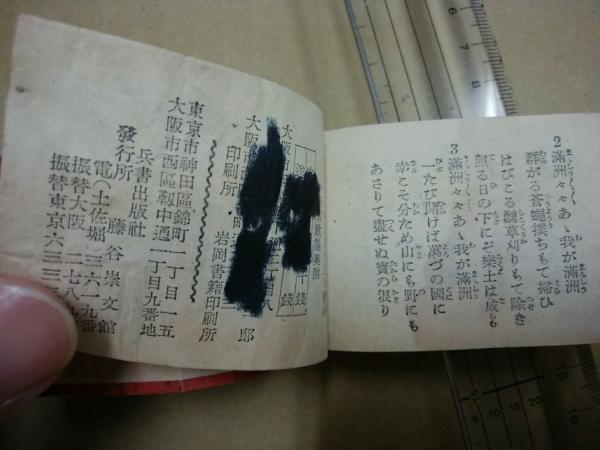 2 滿洲々々あゝ我が滿洲
群がる蒼蠅撲ちもて掃ひ
はびこる醜草刈りもて除き
照る日の下にぞ樂土は成る
3 滿洲々々あゝ我が滿洲
一たび開けば萬づの國に
幸こそ分ため山にも野にも
あさりて盡せぬ寶の張り
大阪市
印刷所 岩岡書籍印刷所
東京市神田區錦町一丁目一五
大阪市西區靱中通二丁目九番地
兵書出版社
發行所 藤谷崇文館
電(土佐堀)三六一九番
振替大阪 二七八
振替東京六三三